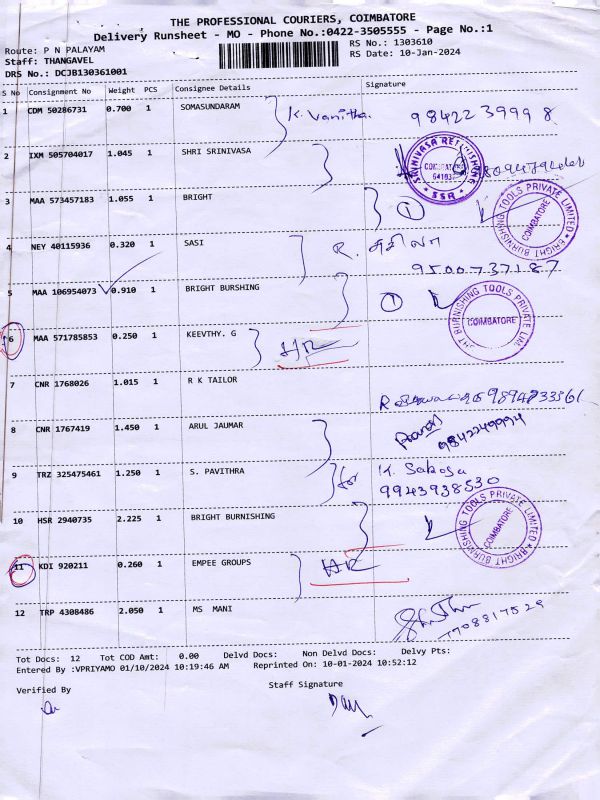 THE PROFESSIONAL COURIERS, COIMBATORE
Delivery Runsheet - MO - Phone No.:0422-3505555 - Page No.:1
Route: P N PALAYAM
RS No.: 1303610
Staff: THANGAVEL
RS Date: 10-Jan-2024
DRS No.: DCJB130361001
S No Consignment No Weight PCS Consignee Details Signature
1 CDM 50286731 0.700 1 SOMASUNDARAM K. Vanitha. 9842239998
2 IXM 505704017 1.045 1 SHRI SRINIVASA
3 MAA 573457183 1.055 1 BRIGHT 1
BRIGHT BURNISHING TOOLS PRIVATE LIMITED COIMBATORE
4 NEY 40115936 0.320 1 SASI R.
9500737187
5 MAA 106954073 0.910 1 BRIGHT BURSHING 1
BURNISHING TOOLS PRIVATE LIM COIMBATORE
6 MAA 571785853 0.250 1 KEEVTHY. G
7 CNR 1768026 1.015 1 R K TAILOR
8 CNR 1767419 1.450 1 ARUL JAUMAR
9842249994
9 TRZ 325475461 1.250 1 S. PAVITHRA for K.
9943938530
10 HSR 2940735 2.225 1 BRIGHT BURNISHING
BRIGHT BURNISHING TOOLS PRIVATE LIMITED COIMBATORE
11 KDI 920211 0.260 1 EMPEE GROUPS
12 TRP 4308486 2.050 1 MS MANI
7708817529
Tot Docs: 12 Tot COD Amt: 0.00 Delvd Docs: Non Delvd Docs: Delvy Pts:
Entered By :VPRIYAMO 01/10/2024 10:19:46 AM Reprinted On: 10-01-2024 10:52:12
Verified By Staff Signature